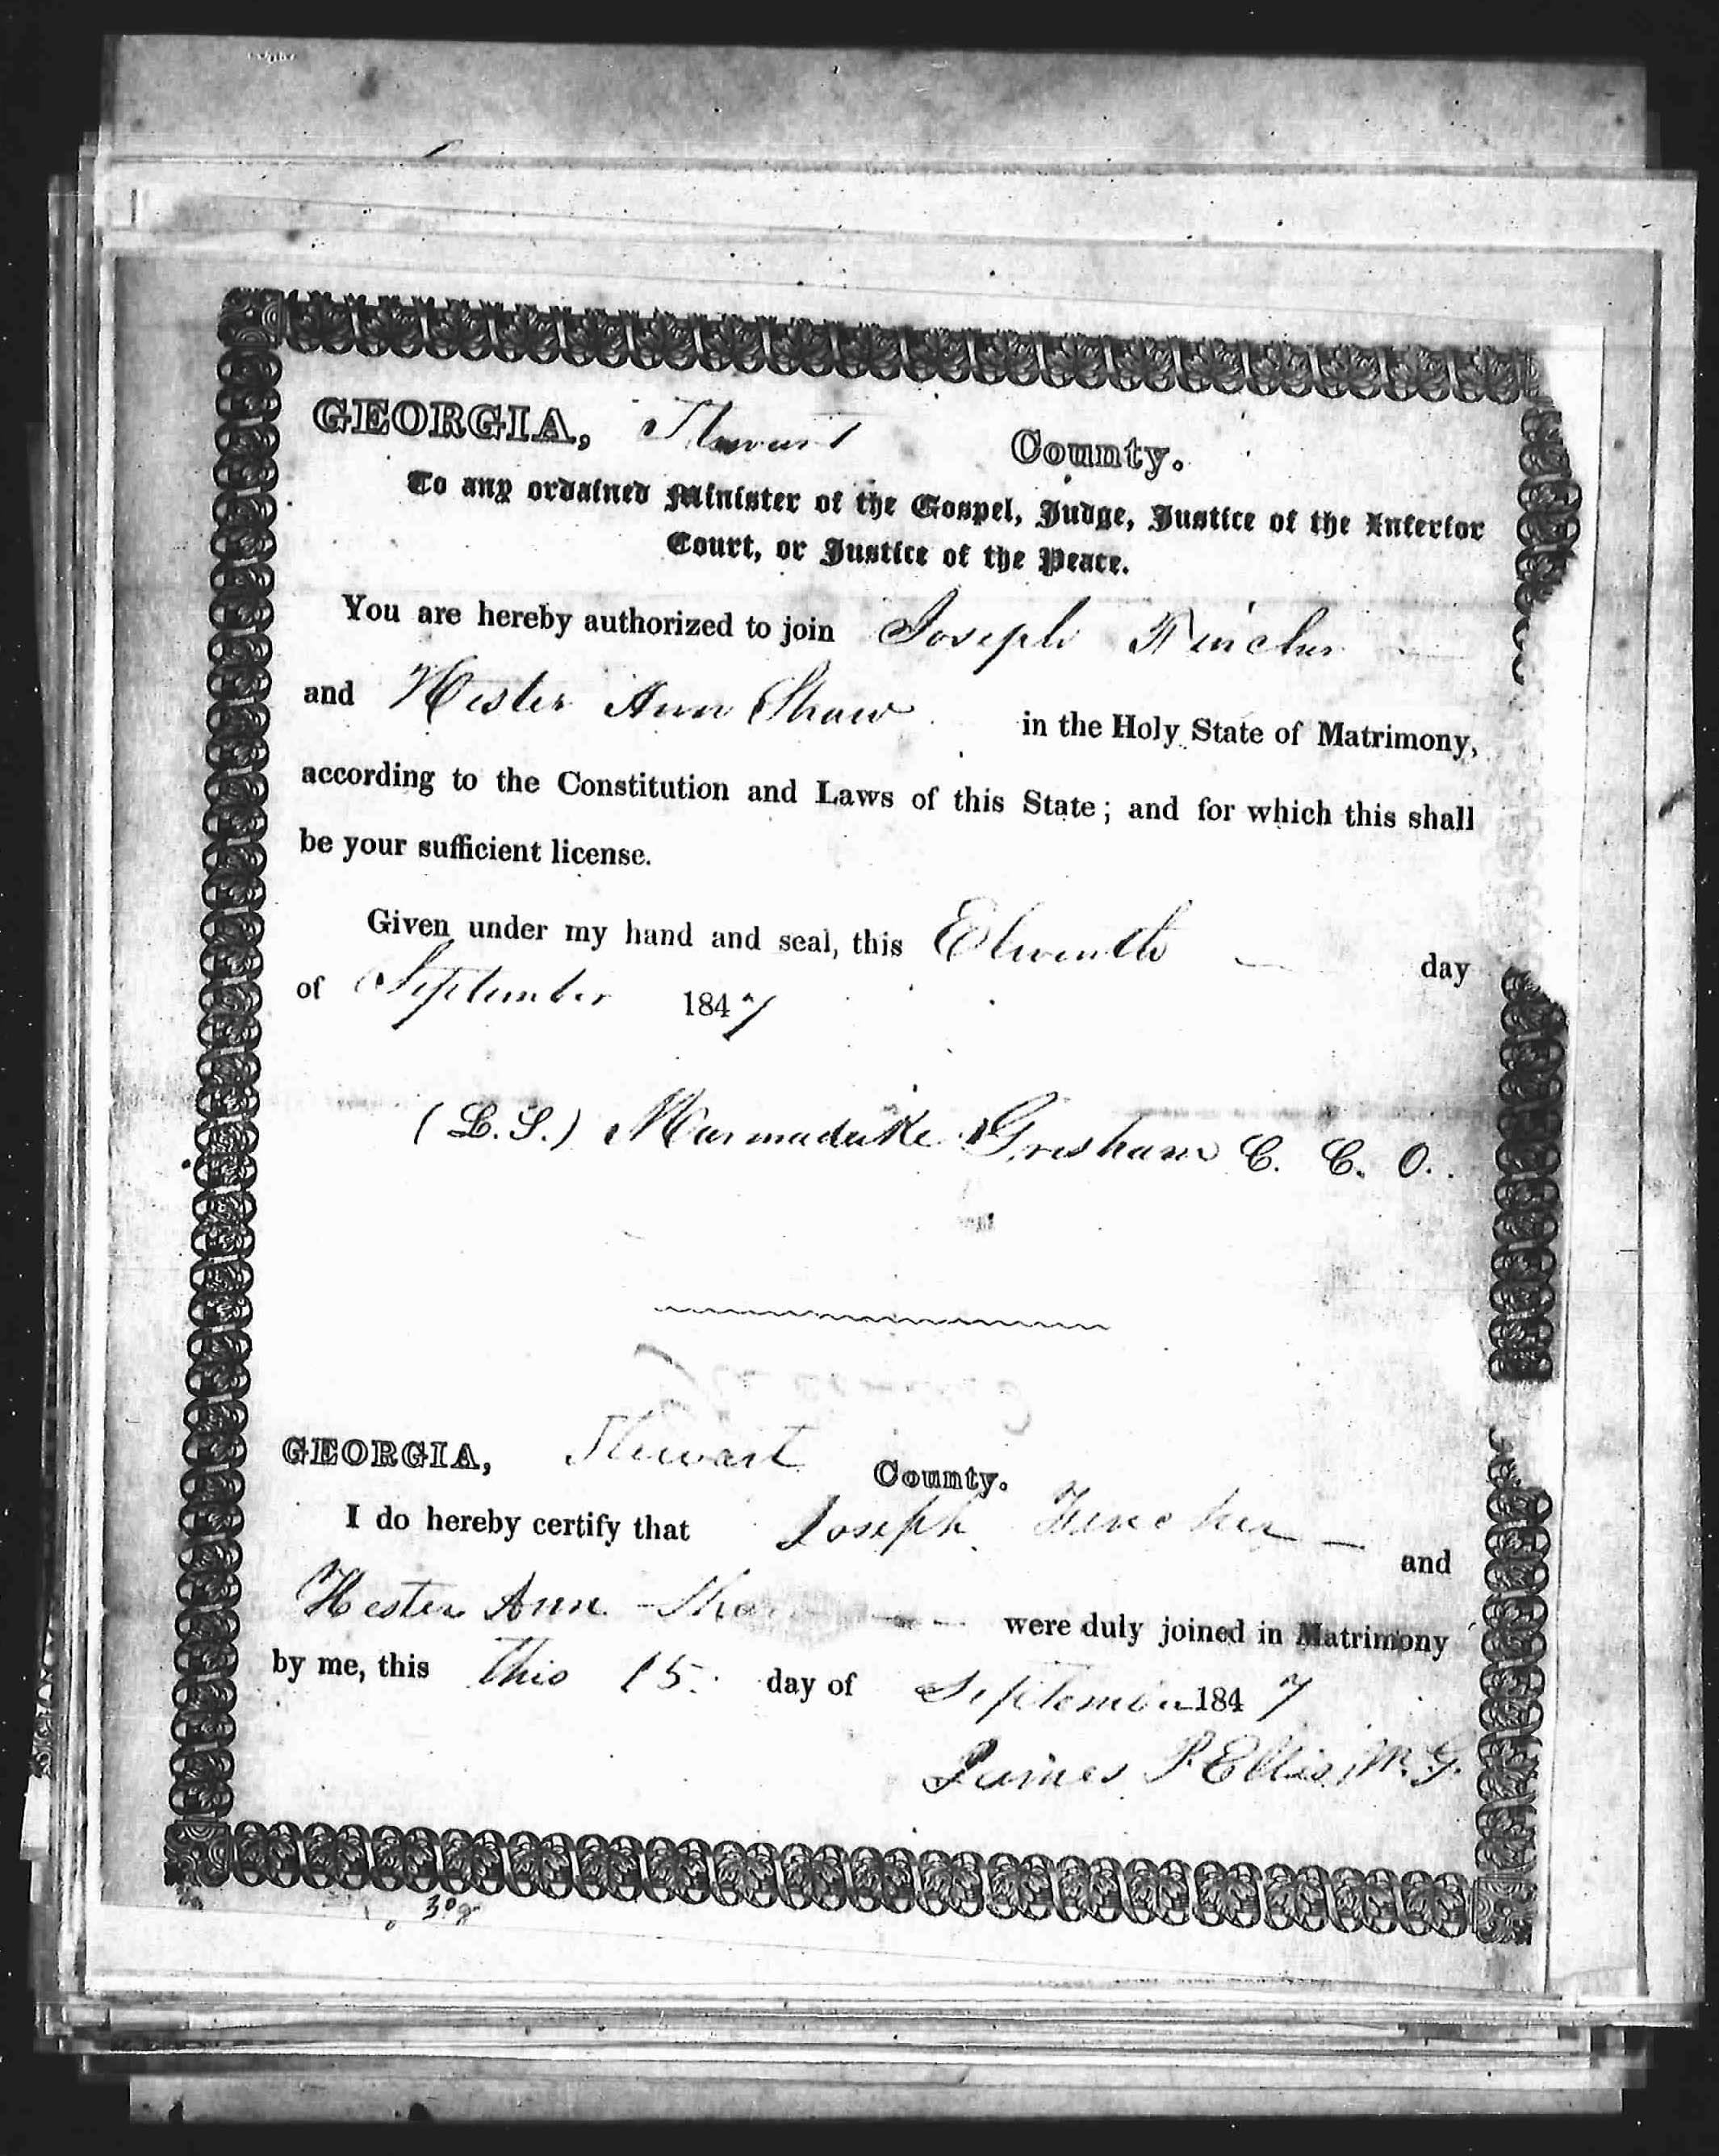 GEORGIA, Stewart County.
To any ordained Minister of the Gospel, Judge, Justice of the Inferior
Court, or Justice of the Peace.
You are hereby authorized to join Joseph Fincher
and Hester Ann Shaw in the Holy State of Matrimony,
according to the Constitution and Laws of this State; and for which this shall
be your sufficient license.
Given under my hand and seal, this Elventh day
of September 1847
(L.S.) Marmaduke Gresham C. C. O.
GEORGIA, Stewart County.
I do hereby certify that Joseph Fincher and
Hester Ann were duly joined in Matrimony
by me, this this 15. day of September 1847
James P Ellis M. G.